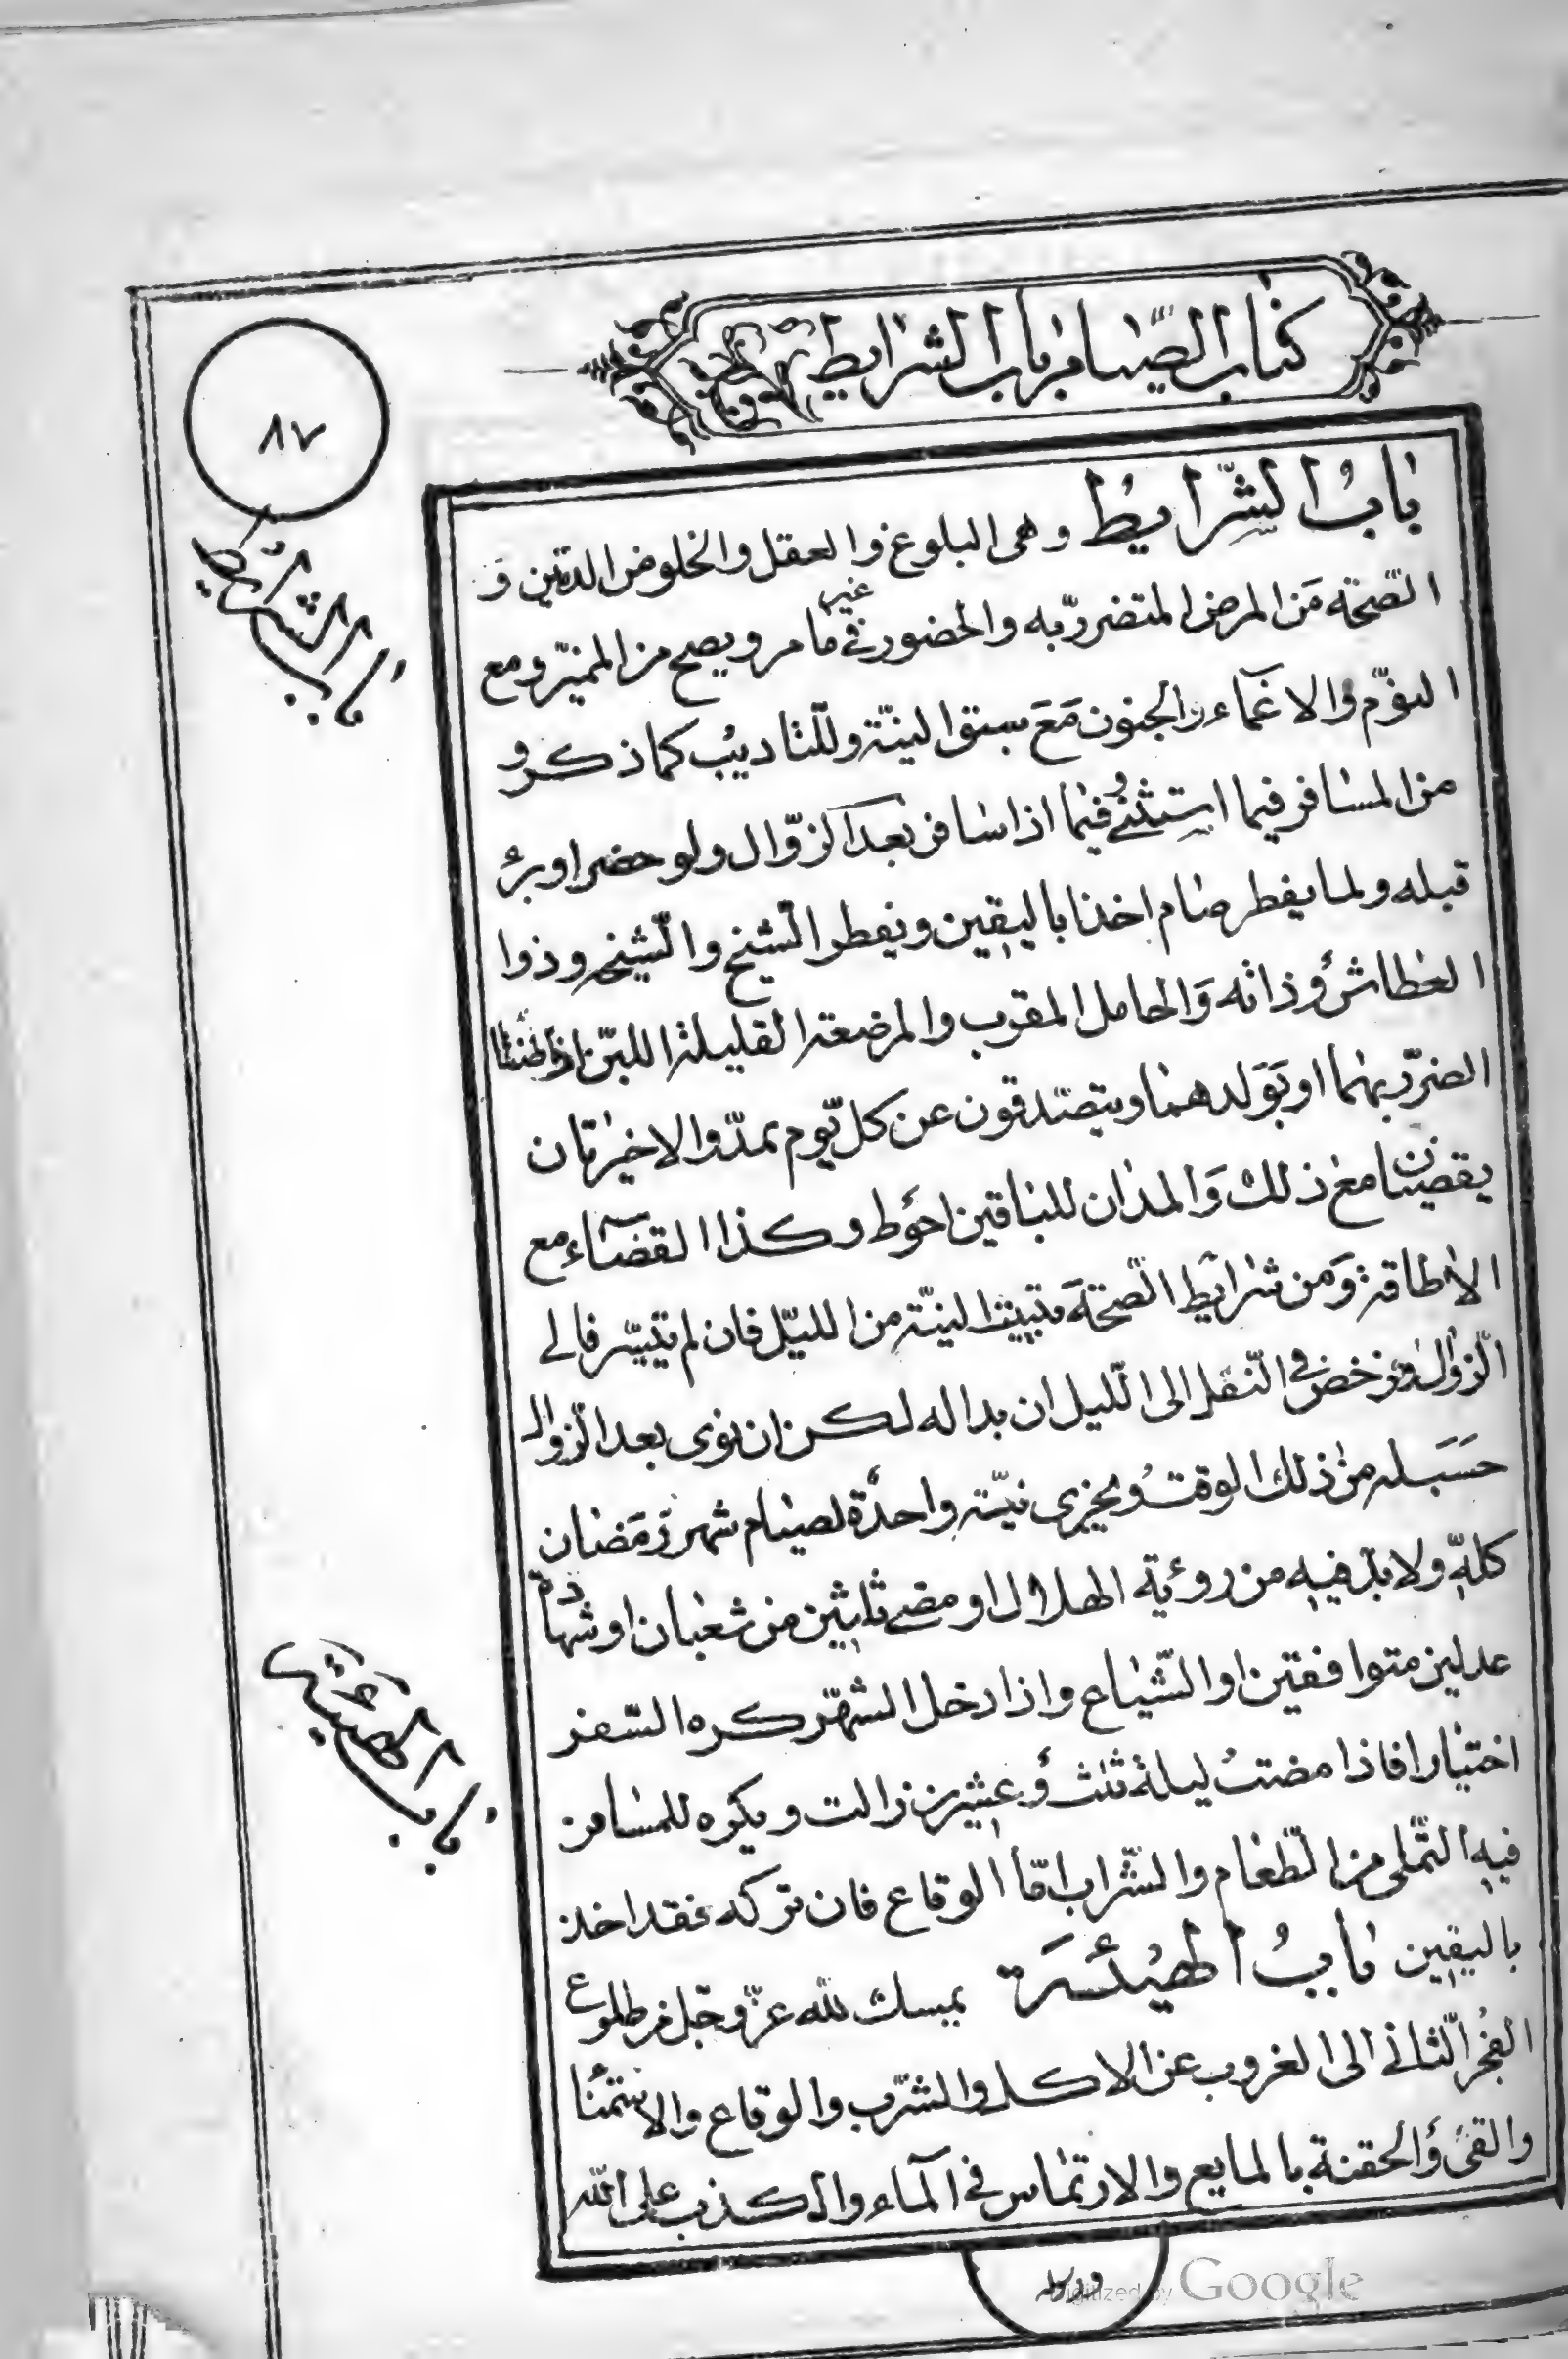 كتاب الصيام باب الشرايط
٨٧
باب الشرايط
باب الشرايط وهى البلوغ والعقل والخلو من الدين و
الصحة من المرض المتضرر به والحضور فى غير ما مر ويصح من المميز ومع
النوم والاغماء والجنون مع سبق النية وللتاديب كما ذكر و
من المسافر فيما استثنى وفيما اذا سافر بعد الزوال ولو حضر او برء
قبله ولما يفطر صام اخذا باليقين ويفطر الشيخ والشيخه وذوا
العطاش وذاته والحامل المقرب والمرضعة القليلة اللبن اذا ظنتا
الضرر بهما او بولدهما ويتصدقون عن كل يوم بمد والاخيرتان
يقضيان مع ذلك والمدان للباقين احوط وكذا القضاء مع
الاطاقة ومن شرايط الصحة تبييت النية من الليل فان لم يتيسر فالى
الزوال ورخص فى النفل الى الليل ان بدا له لكن ان نوى بعد الزوال
حسب له من ذلك الوقت ويجزى نية واحدة لصيام شهر رمضان
كله ولا بد فيه من روءية الهلال او مضى ثلثين من شعبان او شهادة
عدلين متوافقين او الشياع واذا دخل الشهر كره السفر
اختيارا فاذا مضت ليلة ثلث وعشرين زالت ويكره للمسافر
فيه التملى من الطعام والشراب اما الوقاع فان تركه فقد اخذ
باليقين باب الهيئة يمسك لله عز وجل من طلوع
الفجر الثانى الى الغروب عن الاكل والشرب والوقاع والاستمنا
والقئ والحقنة بالمايع والارتماس فى الماء والكذب على الله
باب الهيئة
Digitized by Google